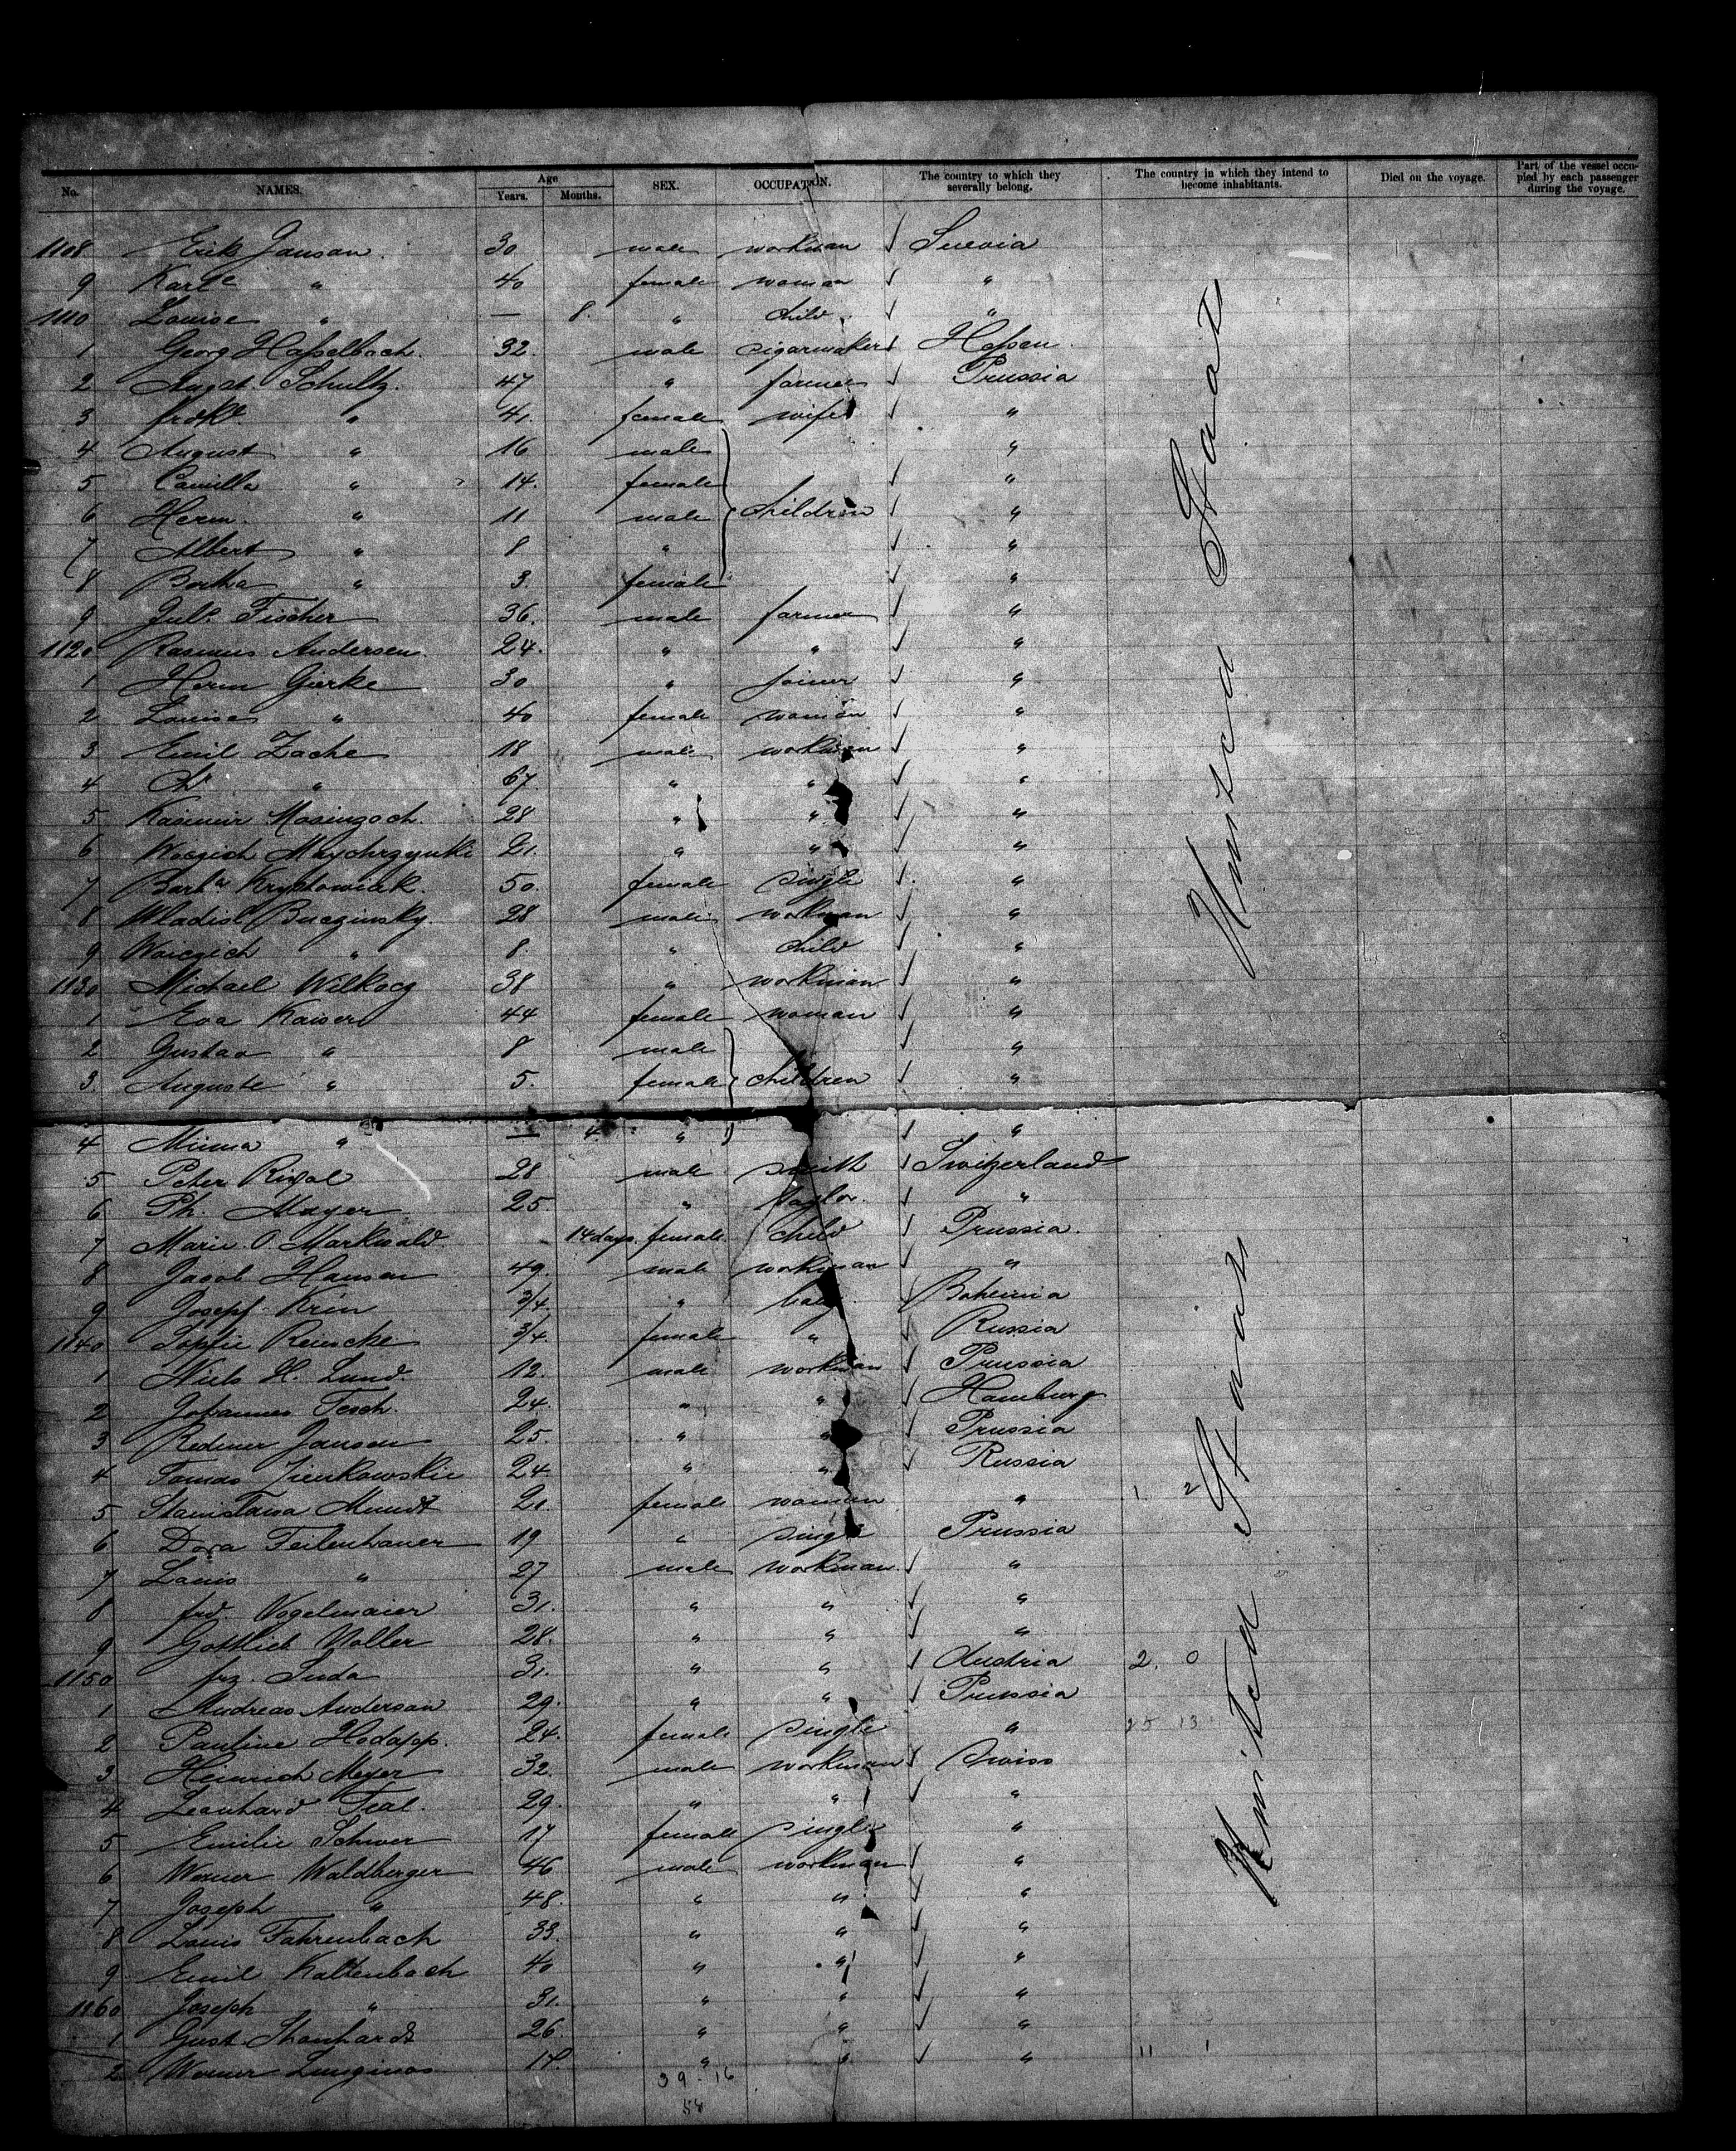 No. NAMES. Age Years. Months. SEX. OCCUPATION. The country to which they severally belong. The country in which they intend to become inhabitants. Died on the voyage. Part of the vessel occupied by each passenger during the voyage.
1108 Erik Jansan 30 male workman Suevia
9 Karle " 40 female woman "
1110 Louise " — 8. " child "
1 Georg Hasselbach. 32. male cigarmaker Hessen
2 Augst. Schultz. 47 " farmer Prussia
3 " 41. female wife "
4 August " 16 male "
5 Camilla " 14. female "
6 Herm. " 11 male children "
7 Albert " 8 " "
8 Bertha " 3. female "
9 Juls. Fischer 36. male farmer "
1120 Rasmus Andersen. 24. " " "
1 Herm Gierke 30 " joiner "
2 Louise " 40 female woman "
3 Emil Zache 18 male workman "
4 Chr " 67. " " "
5 Kasimir 28 " " "
6 21. " " "
7 50. female single "
8 Wladisl Buczinsky. 28 male workman "
9 " 8. " child "
1130 Michael 38 " workman "
1 Eva Kaiser 44 female woman "
2 Gustav " 8 male "
3. Auguste " 5. female children "
4 Minna " — 4 " "
5 Peter 28 male smith Switzerland
6 Ph. Mayer 25. " taylor. "
7 Marie O. Markwald 14 days female child Prussia.
8 Jacob Hansen 49 male workman "
9 Josepf Krin 3/4 " baby Bohemia
1140 Sophie Reincke 3/4. female " Russia
1 Niels H. Lund 12. male workman Prussia
2 Johannes Tesch. 24. " " Hamburg
3 Jansen 25. " " Prussia
4 Tomas 24 " " Russia
5 Stanislawa Mundt 20. female woman " 1 2
6 Dora Feilenhauer 19 " single Prussia
7 Louis " 27 male workman "
8 frd. Vogelmaier 31. " " "
9 Gottlieb Noller 28. " " "
1150 frz. Suda 31. " " Austria 2. 0
1 Andreas Anderson 29. " " Prussia
2 Pauline Hodapp. 24. female single " 25 13
3 Heinrich Meyer 32. male workman Swiss
4 Leonhard Teal. 29. " " "
5 Emilie Schwer 17 female single "
6 Werner Waldberger 46 male workman "
7 Joseph " 48. " " "
8 Louis Fahrenbach 33. " " "
9 Emil Kaltenbach 40 " " "
1160 Joseph " 31. " " "
1 Gust. 26. " " "
2 Werner 17. " " " 11 1
39 - 16
58
United Staats
United Staats